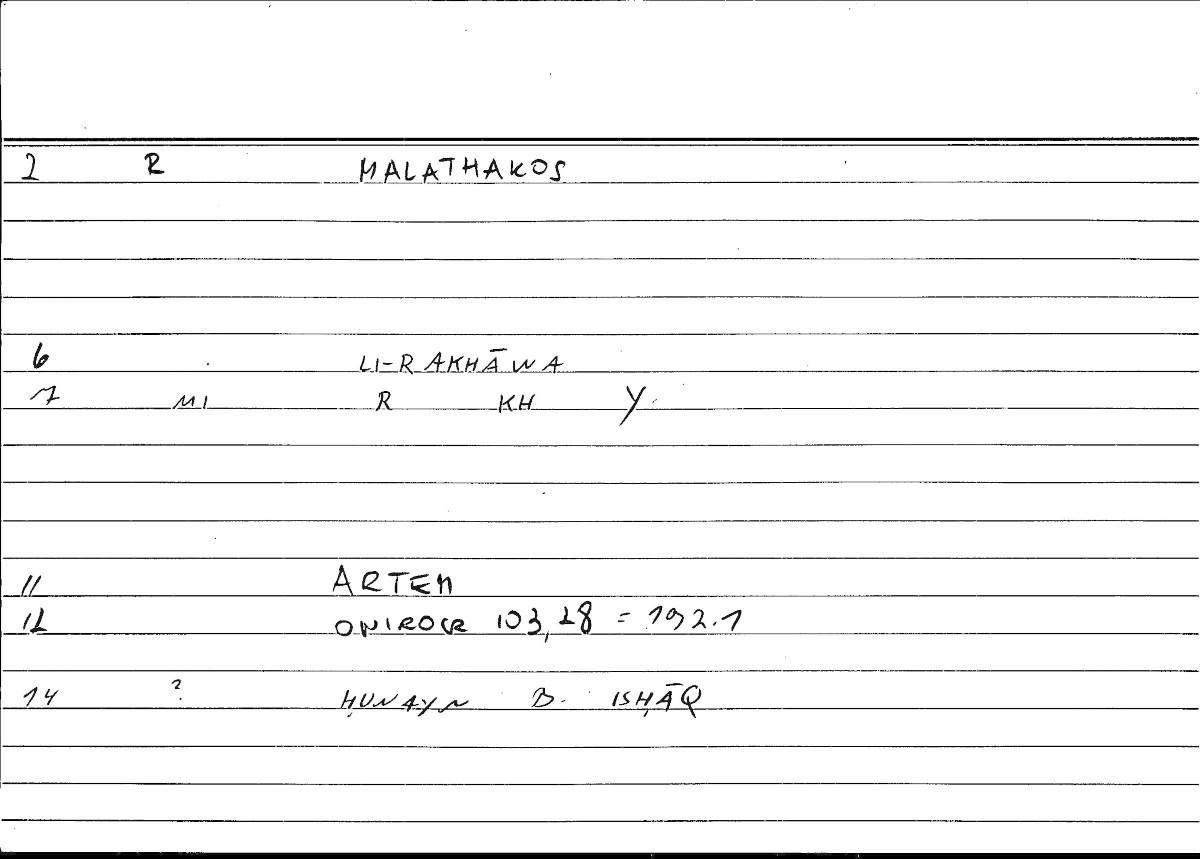 2 R MALATHAKOS
6 LI-RAKHĀWA
7 MI R KH Y
11 ARTEM
12 ONIROCR 103,28 = 192.1
14 ? ḤUNAYN B. ISḤĀQ